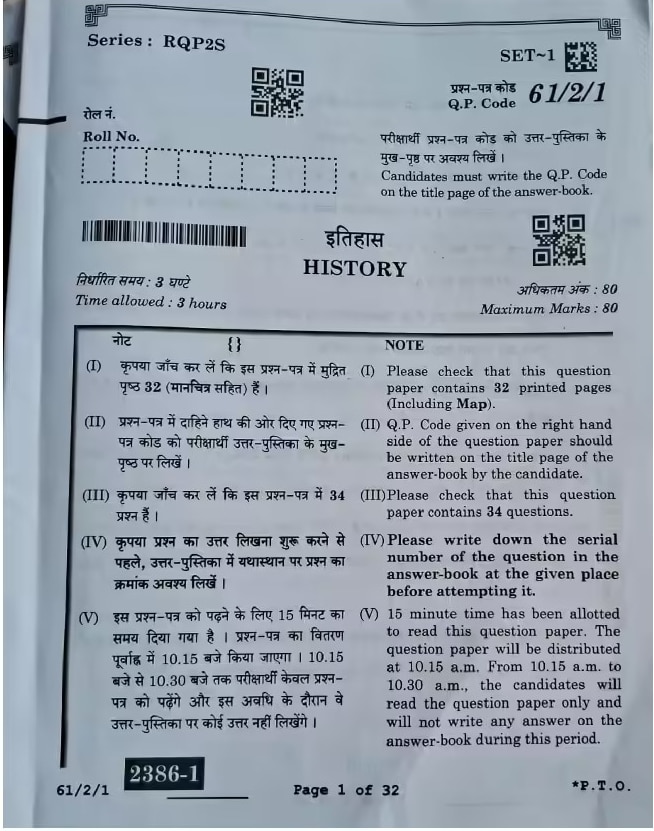 Series : RQP2S
SET~1
प्रश्न-पत्र कोड
Q.P. Code 61/2/1
रोल नं.
Roll No.
परीक्षार्थी प्रश्न-पत्र कोड को उत्तर-पुस्तिका के
मुख-पृष्ठ पर अवश्य लिखें ।
Candidates must write the Q.P. Code
on the title page of the answer-book.
इतिहास
HISTORY
निर्धारित समय : 3 घण्टे
Time allowed : 3 hours
अधिकतम अंक : 80
Maximum Marks : 80
नोट
{}
(I) कृपया जाँच कर लें कि इस प्रश्न-पत्र में मुद्रित
पृष्ठ 32 (मानचित्र सहित) हैं ।
(II) प्रश्न-पत्र में दाहिने हाथ की ओर दिए गए प्रश्न-
पत्र कोड को परीक्षार्थी उत्तर-पुस्तिका के मुख-
पृष्ठ पर लिखें ।
(III) कृपया जाँच कर लें कि इस प्रश्न-पत्र में 34
प्रश्न हैं ।
(IV) कृपया प्रश्न का उत्तर लिखना शुरू करने से
पहले, उत्तर-पुस्तिका में यथास्थान पर प्रश्न का
क्रमांक अवश्य लिखें ।
(V) इस प्रश्न-पत्र को पढ़ने के लिए 15 मिनट का
समय दिया गया है । प्रश्न-पत्र का वितरण
पूर्वाह्न में 10.15 बजे किया जाएगा । 10.15
बजे से 10.30 बजे तक परीक्षार्थी केवल प्रश्न-
पत्र को पढ़ेंगे और इस अवधि के दौरान वे
उत्तर-पुस्तिका पर कोई उत्तर नहीं लिखेंगे ।
NOTE
(I) Please check that this question
paper contains 32 printed pages
(Including Map).
(II) Q.P. Code given on the right hand
side of the question paper should
be written on the title page of the
answer-book by the candidate.
(III)Please check that this question
paper contains 34 questions.
(IV) Please write down the serial
number of the question in the
answer-book at the given place
before attempting it.
(V) 15 minute time has been allotted
to read this question paper. The
question paper will be distributed
at 10.15 a.m. From 10.15 a.m. to
10.30 a.m., the candidates will
read the question paper only and
will not write any answer on the
answer-book during this period.
2386-1
61/2/1
Page 1 of 32
*P.T.O.